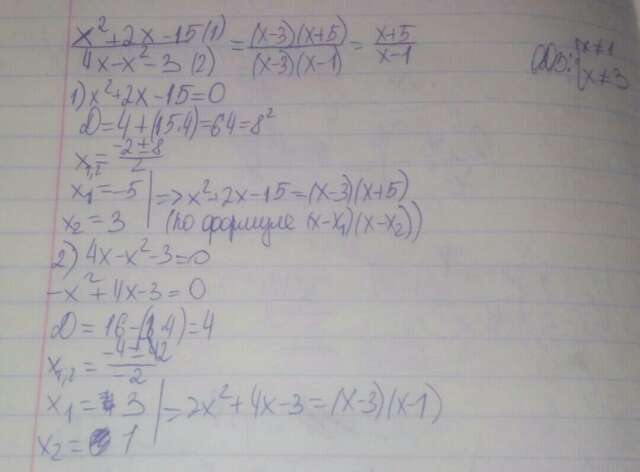 x²+2x-15(1) / 4x-x²-3(2) = (x-3)(x+5) / (x-3)(x-1) = x+5 / x-1
ОДЗ: {x≠1 x≠3
1) x²+2x-15=0
D=4+(15·4)=64=8²
x₁,₂= -2±8 / 2
x₁=-5
x₂=3
=> x²+2x-15=(x-3)(x+5)
(по формуле (x-x₁)(x-x₂))
2) 4x-x²-3=0
-x²+4x-3=0
D=16-(3·4)=4
x₁,₂= -4±2 / -2
x₁=3
x₂=1
=> x²+4x-3=(x-3)(x-1)